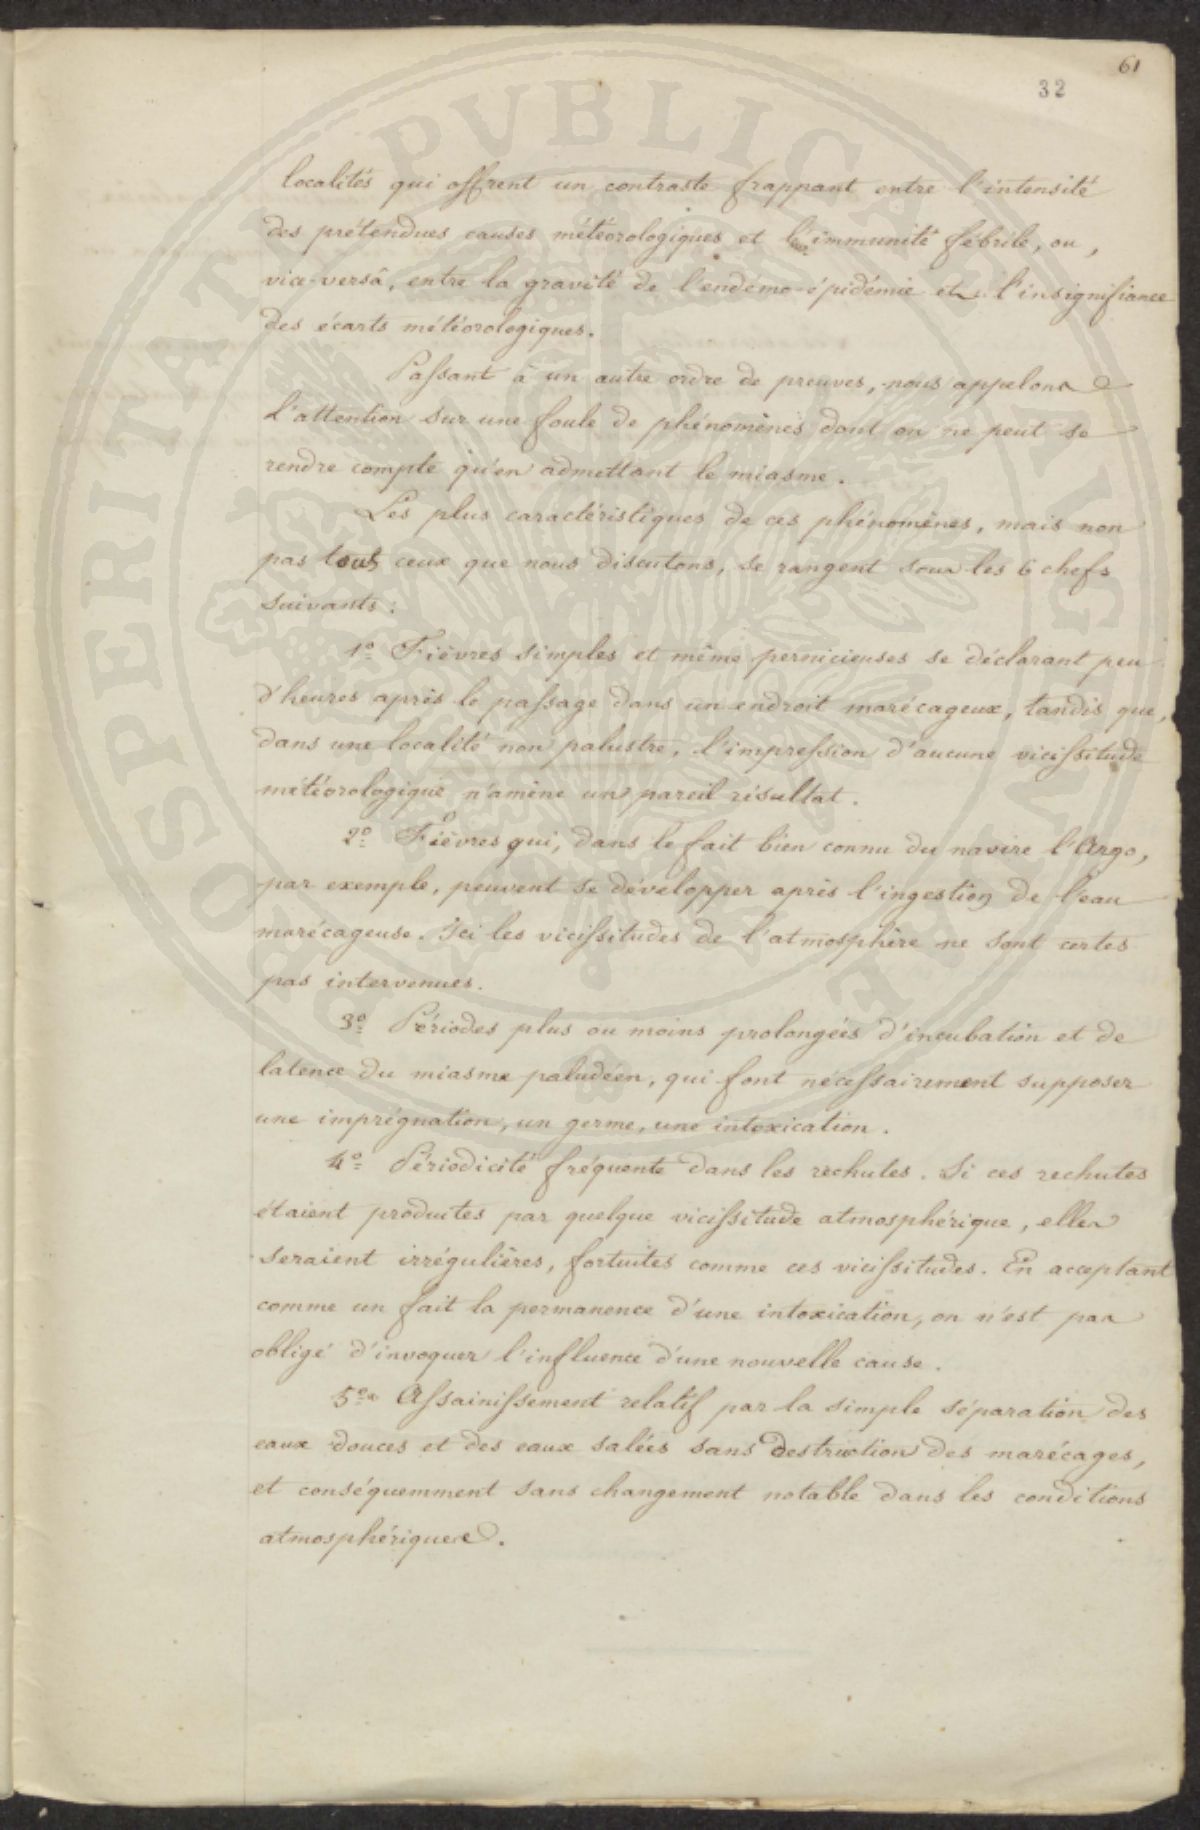 61
32
localités qui offrent un contraste frappant entre l'intensité
des prétendues causes météorologiques et l'immunité fébrile, ou,
vice-versâ, entre la gravité de l'endémo-épidémie et l'insignifiance
des écarts météorologiques.
Passant à un autre ordre de preuves, nous appelons
l'attention sur une foule de phénomènes dont on ne peut se
rendre compte qu'en admettant le miasme.
Les plus caractéristiques de ces phénomènes, mais non
pas tous ceux que nous discutons, se rangent sous les 6 chefs
suivants :
1º Fièvres simples et même pernicieuses se déclarant peu
d'heures après le passage dans un endroit marécageux, tandis que,
dans une localité non palustre, l'impression d'aucune vicissitude
météorologique n'amène un pareil résultat.
2º Fièvres qui, dans le fait bien connu du navire l'Argo,
par exemple, peuvent se développer après l'ingestion de l'eau
marécageuse. Ici les vicissitudes de l'atmosphère ne sont certes
pas intervenues.
3º Périodes plus ou moins prolongées d'incubation et de
latence du miasme paludéen, qui font nécessairement supposer
une imprégnation, un germe, une intoxication.
4º Périodicité fréquente dans les rechutes. Si ces rechutes
étaient produites par quelque vicissitude atmosphérique, elles
seraient irrégulières, fortuites comme ces vicissitudes. En acceptant
comme un fait la permanence d'une intoxication, on n'est pas
obligé d'invoquer l'influence d'une nouvelle cause.
5º Assainissement relatif par la simple séparation des
eaux douces et des eaux salées sans destruction des marécages,
et conséquemment sans changement notable dans les conditions
atmosphériques.
PROSPERITATI PUBLICAE AUGENDAE